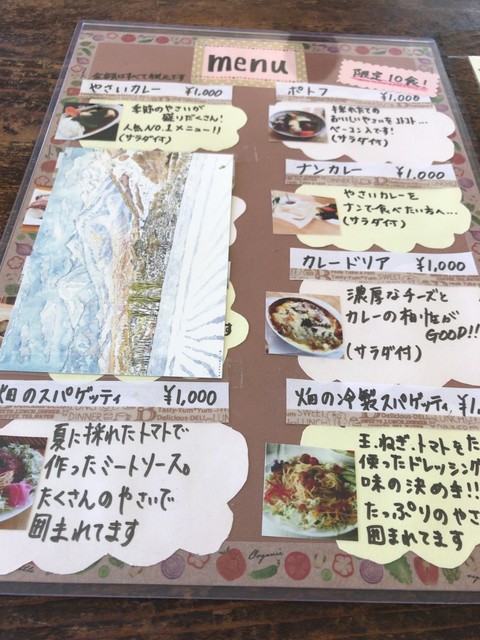 menu
限定10食!
金額はすべて税込です
やさいカレー ¥1,000
季節のやさいが
盛りだくさん!
人気NO.1メニュー!!
(サラダ付)
ポトフ ¥1,000
採れたての
おいしいやさいをコトコト...
ベーコン入です!
(サラダ付)
ナンカレー ¥1,000
やさいカレーを
ナンで食べたい方へ...
(サラダ付)
カレードリア ¥1,000
濃厚なチーズと
カレーの相性が
GOOD!!
(サラダ付)
畑のスパゲッティ ¥1,000
夏に採れたトマトで
作ったミートソース。
たくさんのやさいで
囲まれてます
畑の冷製スパゲッティ ¥1
玉ねぎ、トマトをた
使ったドレッシング
味の決め手!!
たっぷりのやさ
囲まれてます